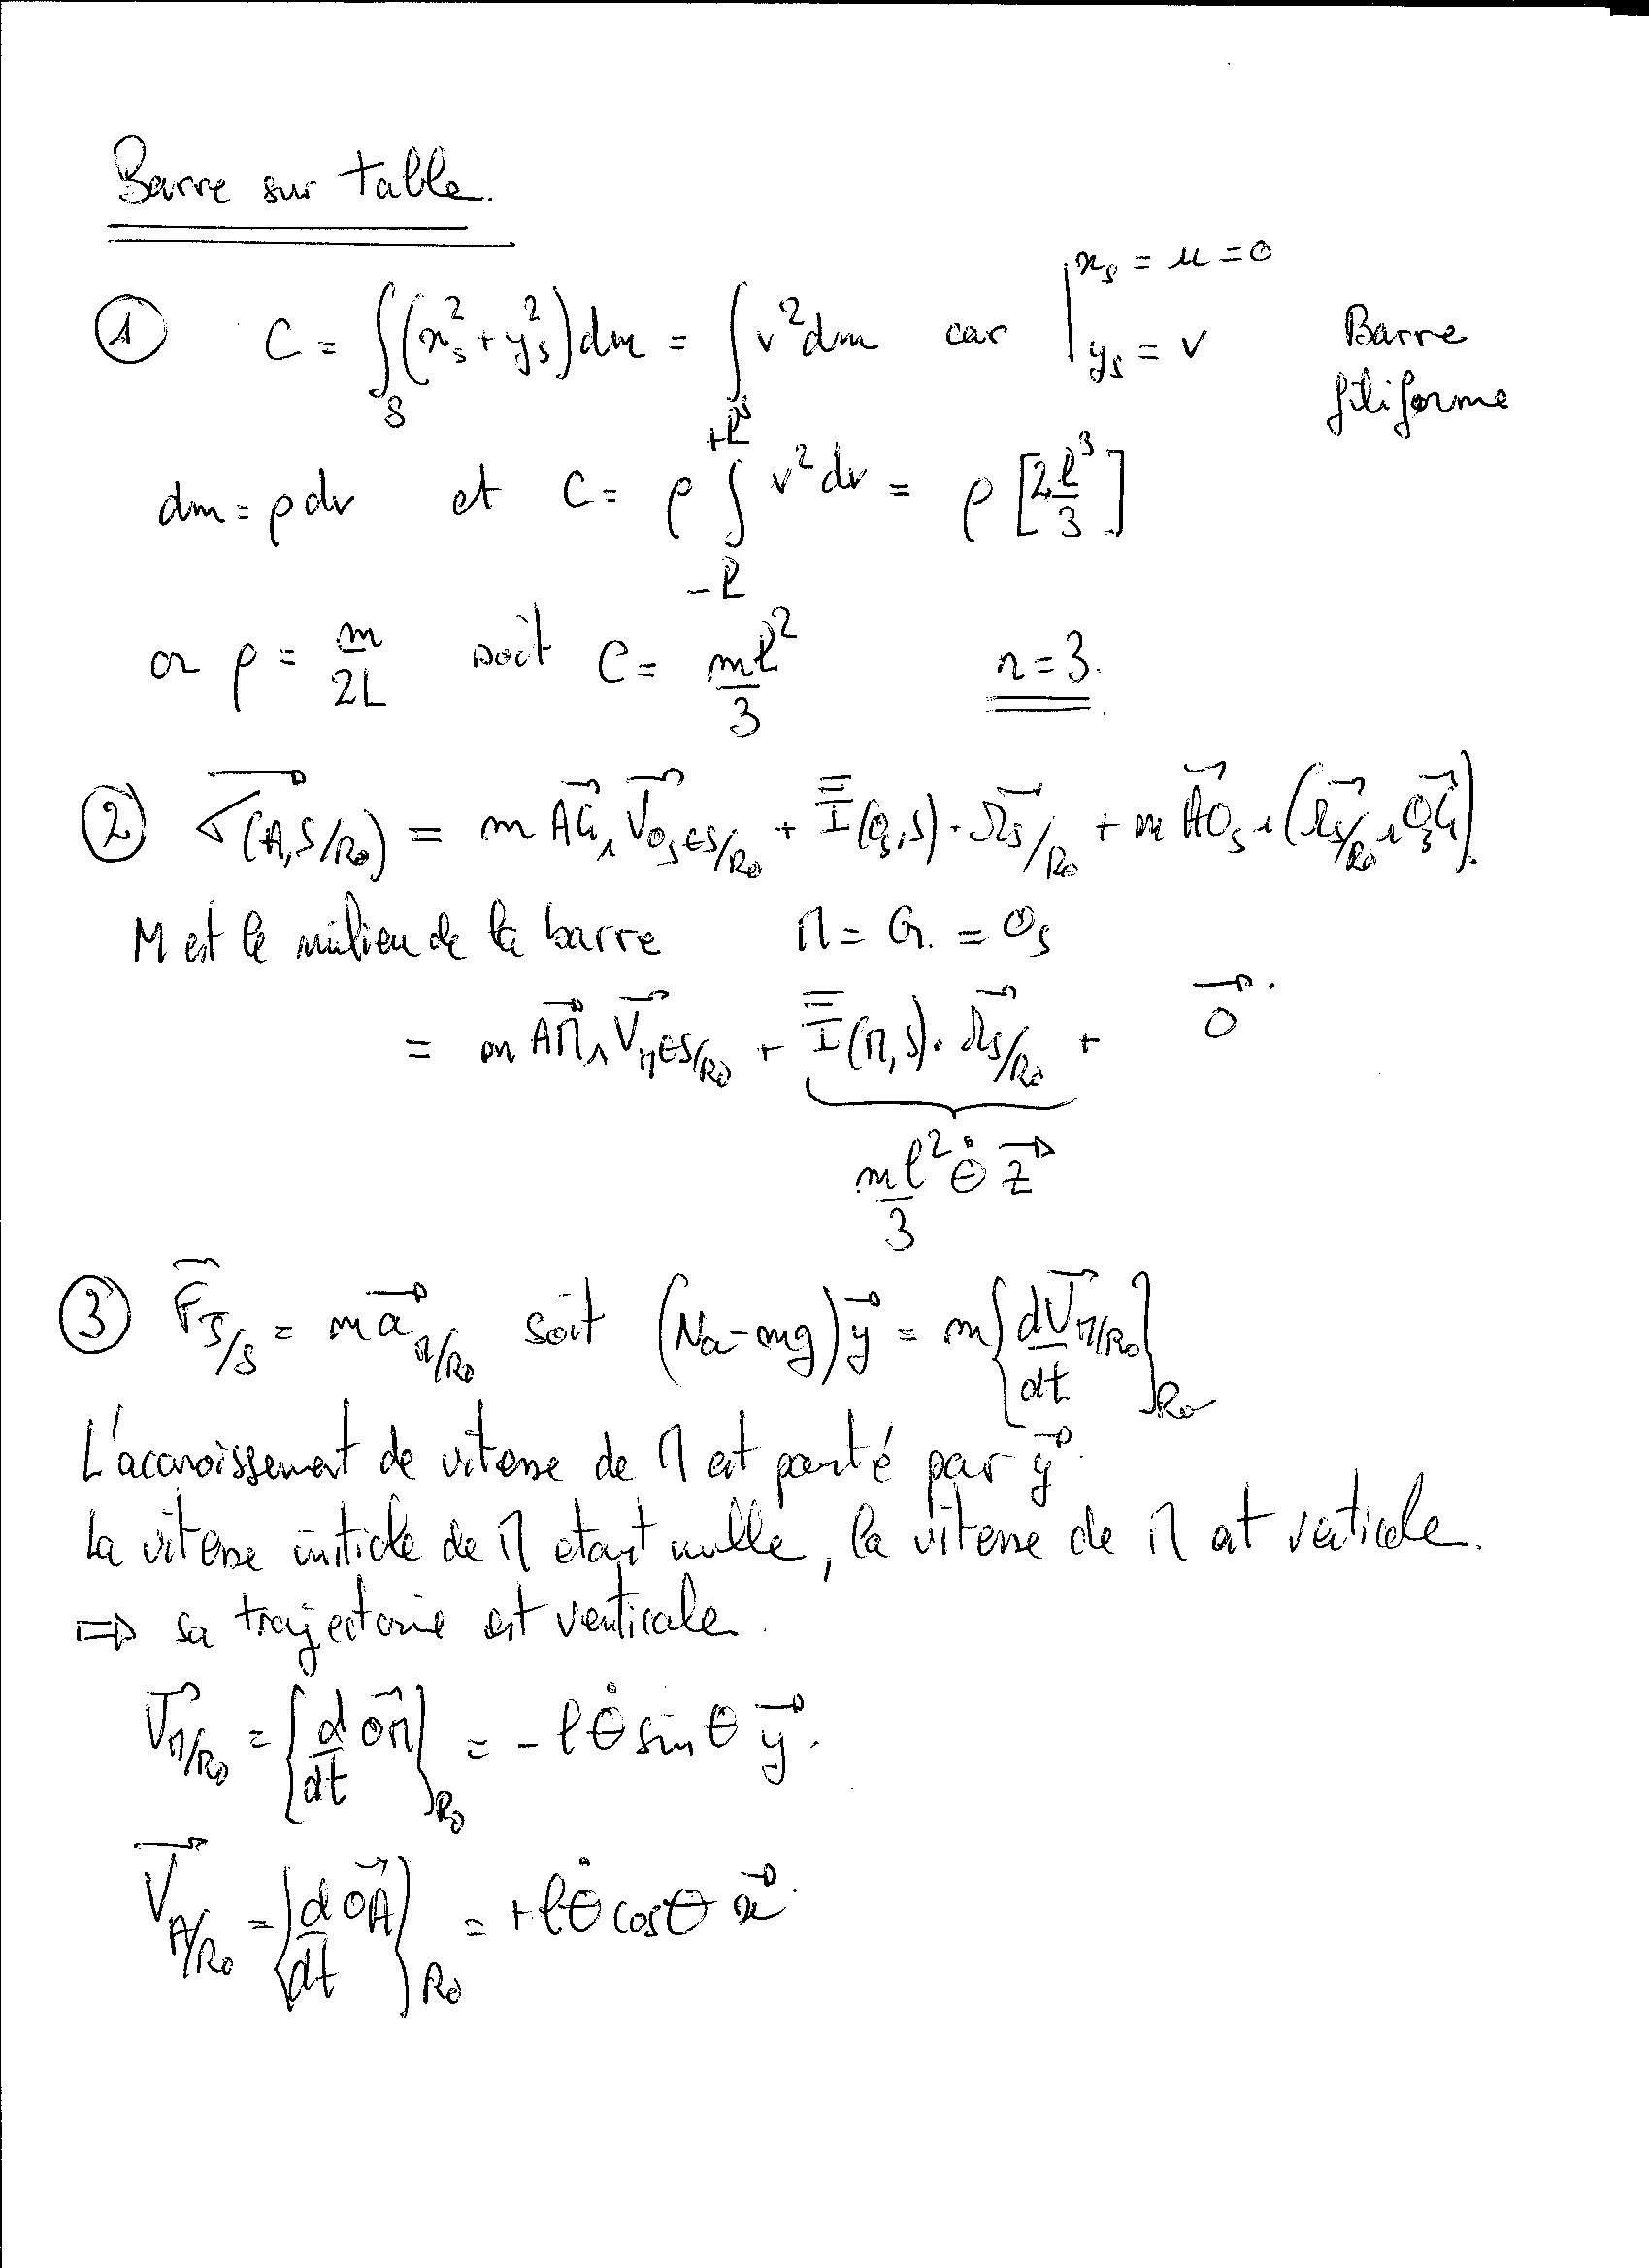 Barre sur table.
① C = ∫_S (x_s² + y_s²) dm = ∫_S v² dm car | x_s = u = 0 | y_s = v Barre filiforme
dm = ρ dv et C = ρ ∫_{-l}^{+l} v² dv = ρ [2l³/3]
or ρ = m/2L soit C = ml²/3 n = 3.
② σ⃗(A,S/R₀) = m AG⃗ ∧ V⃗_{O_s∈S/R₀} + I̿(O_s,S) · Ω⃗_{S/R₀} + m AO_s⃗ ∧ (Ω⃗_{S/R₀} ∧ O_sG⃗).
M est le milieu de la barre M = G. = O_s
= m AM⃗ ∧ V⃗_{M∈S/R₀} + I̿(M,S) · Ω⃗_{S/R₀} + 0⃗.
ml²/3 θ̇ z⃗
③ F⃗_{S̄/S} = m a⃗_{M/R₀} soit (N_a - mg) y⃗ = m {dV⃗_{M/R₀}/dt}_{R₀}
L'accroissement de vitesse de M est porté par y⃗.
La vitesse initiale de M etant nulle, la vitesse de M est verticale.
⇒ sa trajectoire est verticale.
V⃗_{M/R₀} = {d/dt OM⃗}_{R₀} = - l θ̇ sin θ y⃗.
V⃗_{A/R₀} = {d/dt OA⃗}_{R₀} = + l θ̇ cos θ x⃗.